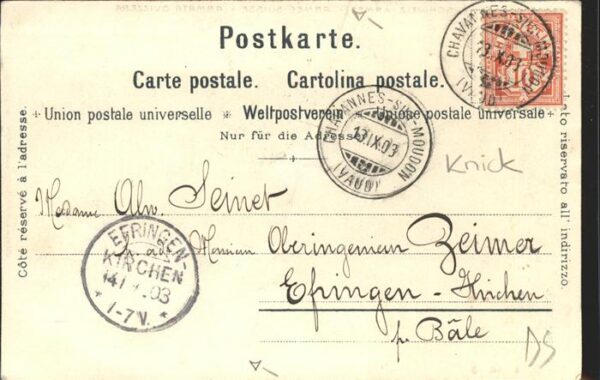 Postkarte.
Carte postale. Cartolina postale.
Union postale universelle * Weltpostverein * Unione postale universale
Nur für die Adresse.
Côte réservé à l'adresse.
Lato riservato all' indirizzo.
CHAVANNES-SUR-MOUDON
13.IX.03
(VAUD)
CHAVANNES-SUR-MOUDON
13.IX.03
(VAUD)
10
Knick
Madame Alw. Seinet
Monsieur Oberingenieur Zeimer
Efringen-Kirchen
p. Bâle
EFRINGEN-
KIRCHEN
03
1-7V.
DS